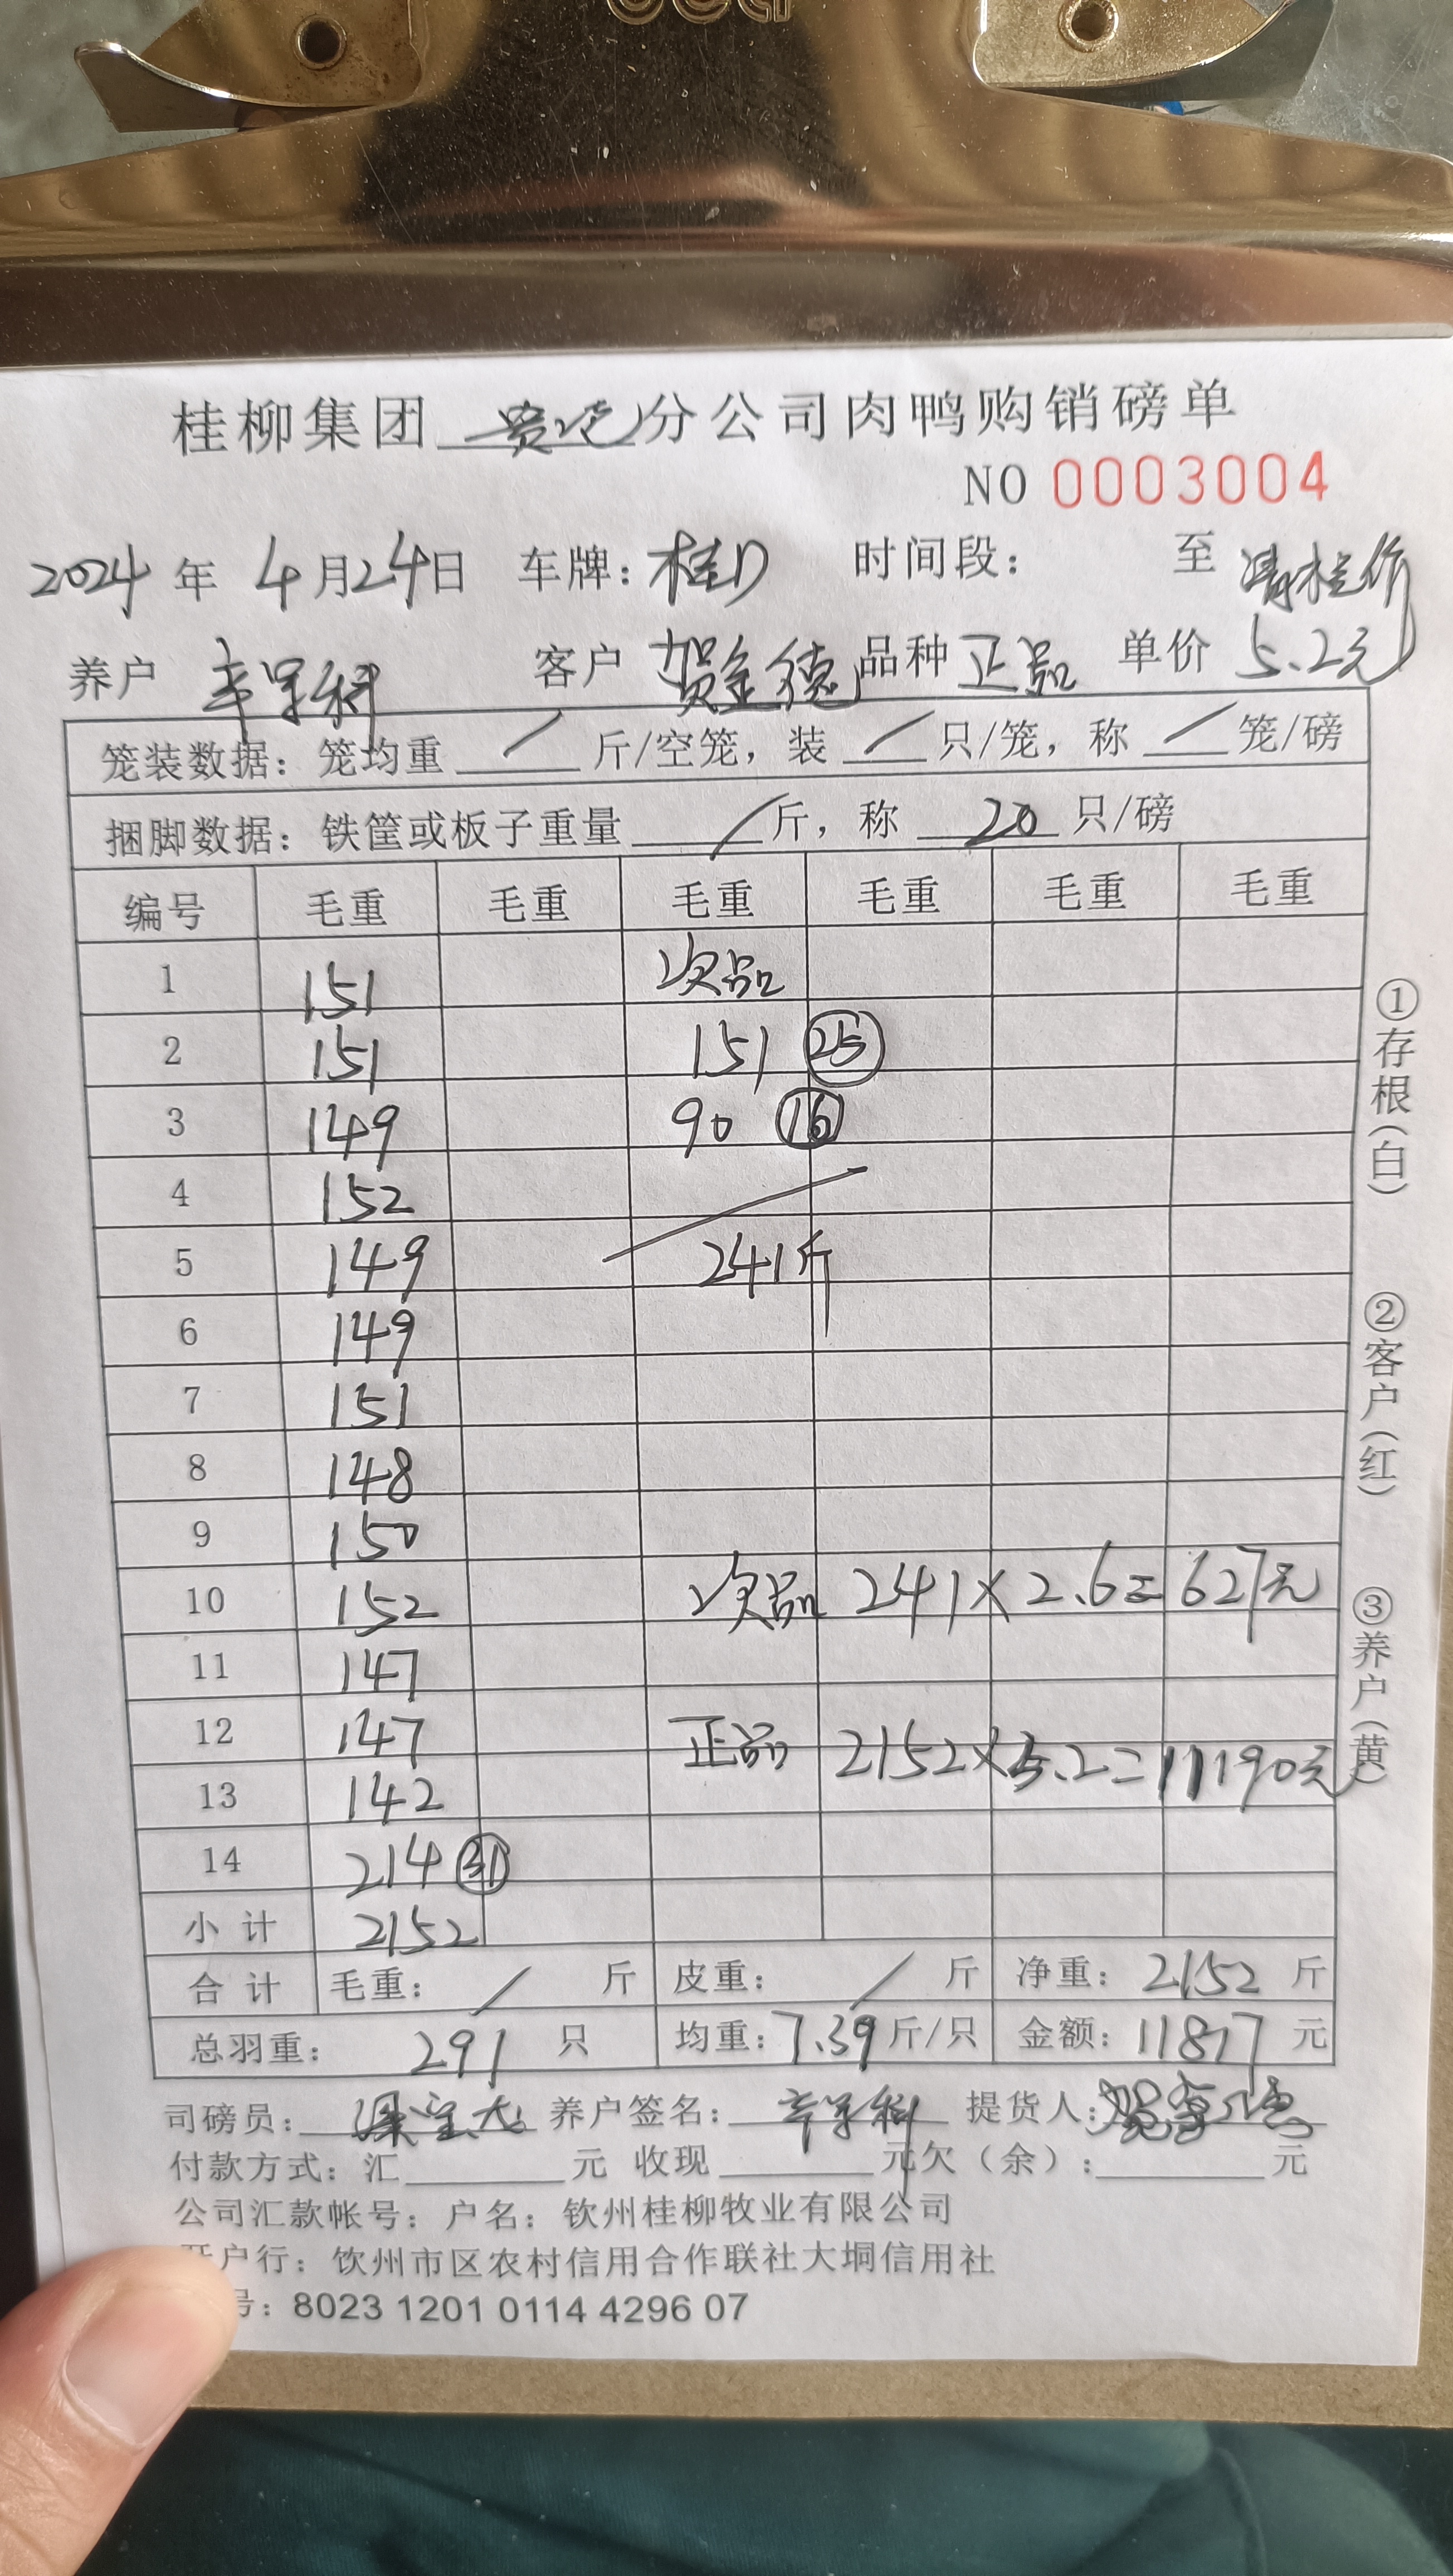 桂柳集团 分公司肉鸭购销磅单
NO 0003004
2024 年 4 月 24 日 车牌: 桂D 时间段: 至
养户 客户 贺金德 品种 正品 单价 5.2元
笼装数据: 笼均重 / 斤/空笼, 装 / 只/笼, 称 / 笼/磅
捆脚数据: 铁筐或板子重量 / 斤, 称 20 只/磅
编号 毛重 毛重 毛重 毛重 毛重 毛重
1 151 次品
2 151 151 25
3 149 90 16
4 152
5 149 241斤
6 149
7 151
8 148
9 150
10 152 次品 241×2.6=627元
11 147
12 147 正品 2152×5.2=11190元
13 142
14 214 31
小 计 2152
合 计 毛重: / 斤 皮重: / 斤 净重: 2152 斤
总羽重: 291 只 均重: 7.39 斤/只 金额: 11817 元
司磅员: 养户签名: 提货人:
付款方式: 汇 元 收现 元欠(余): 元
公司汇款帐号: 户名: 钦州桂柳牧业有限公司
开户行: 钦州市区农村信用合作联社大垌信用社
号: 8023 1201 0114 4296 07
①存根(白)
②客户(红)
③养户(黄)